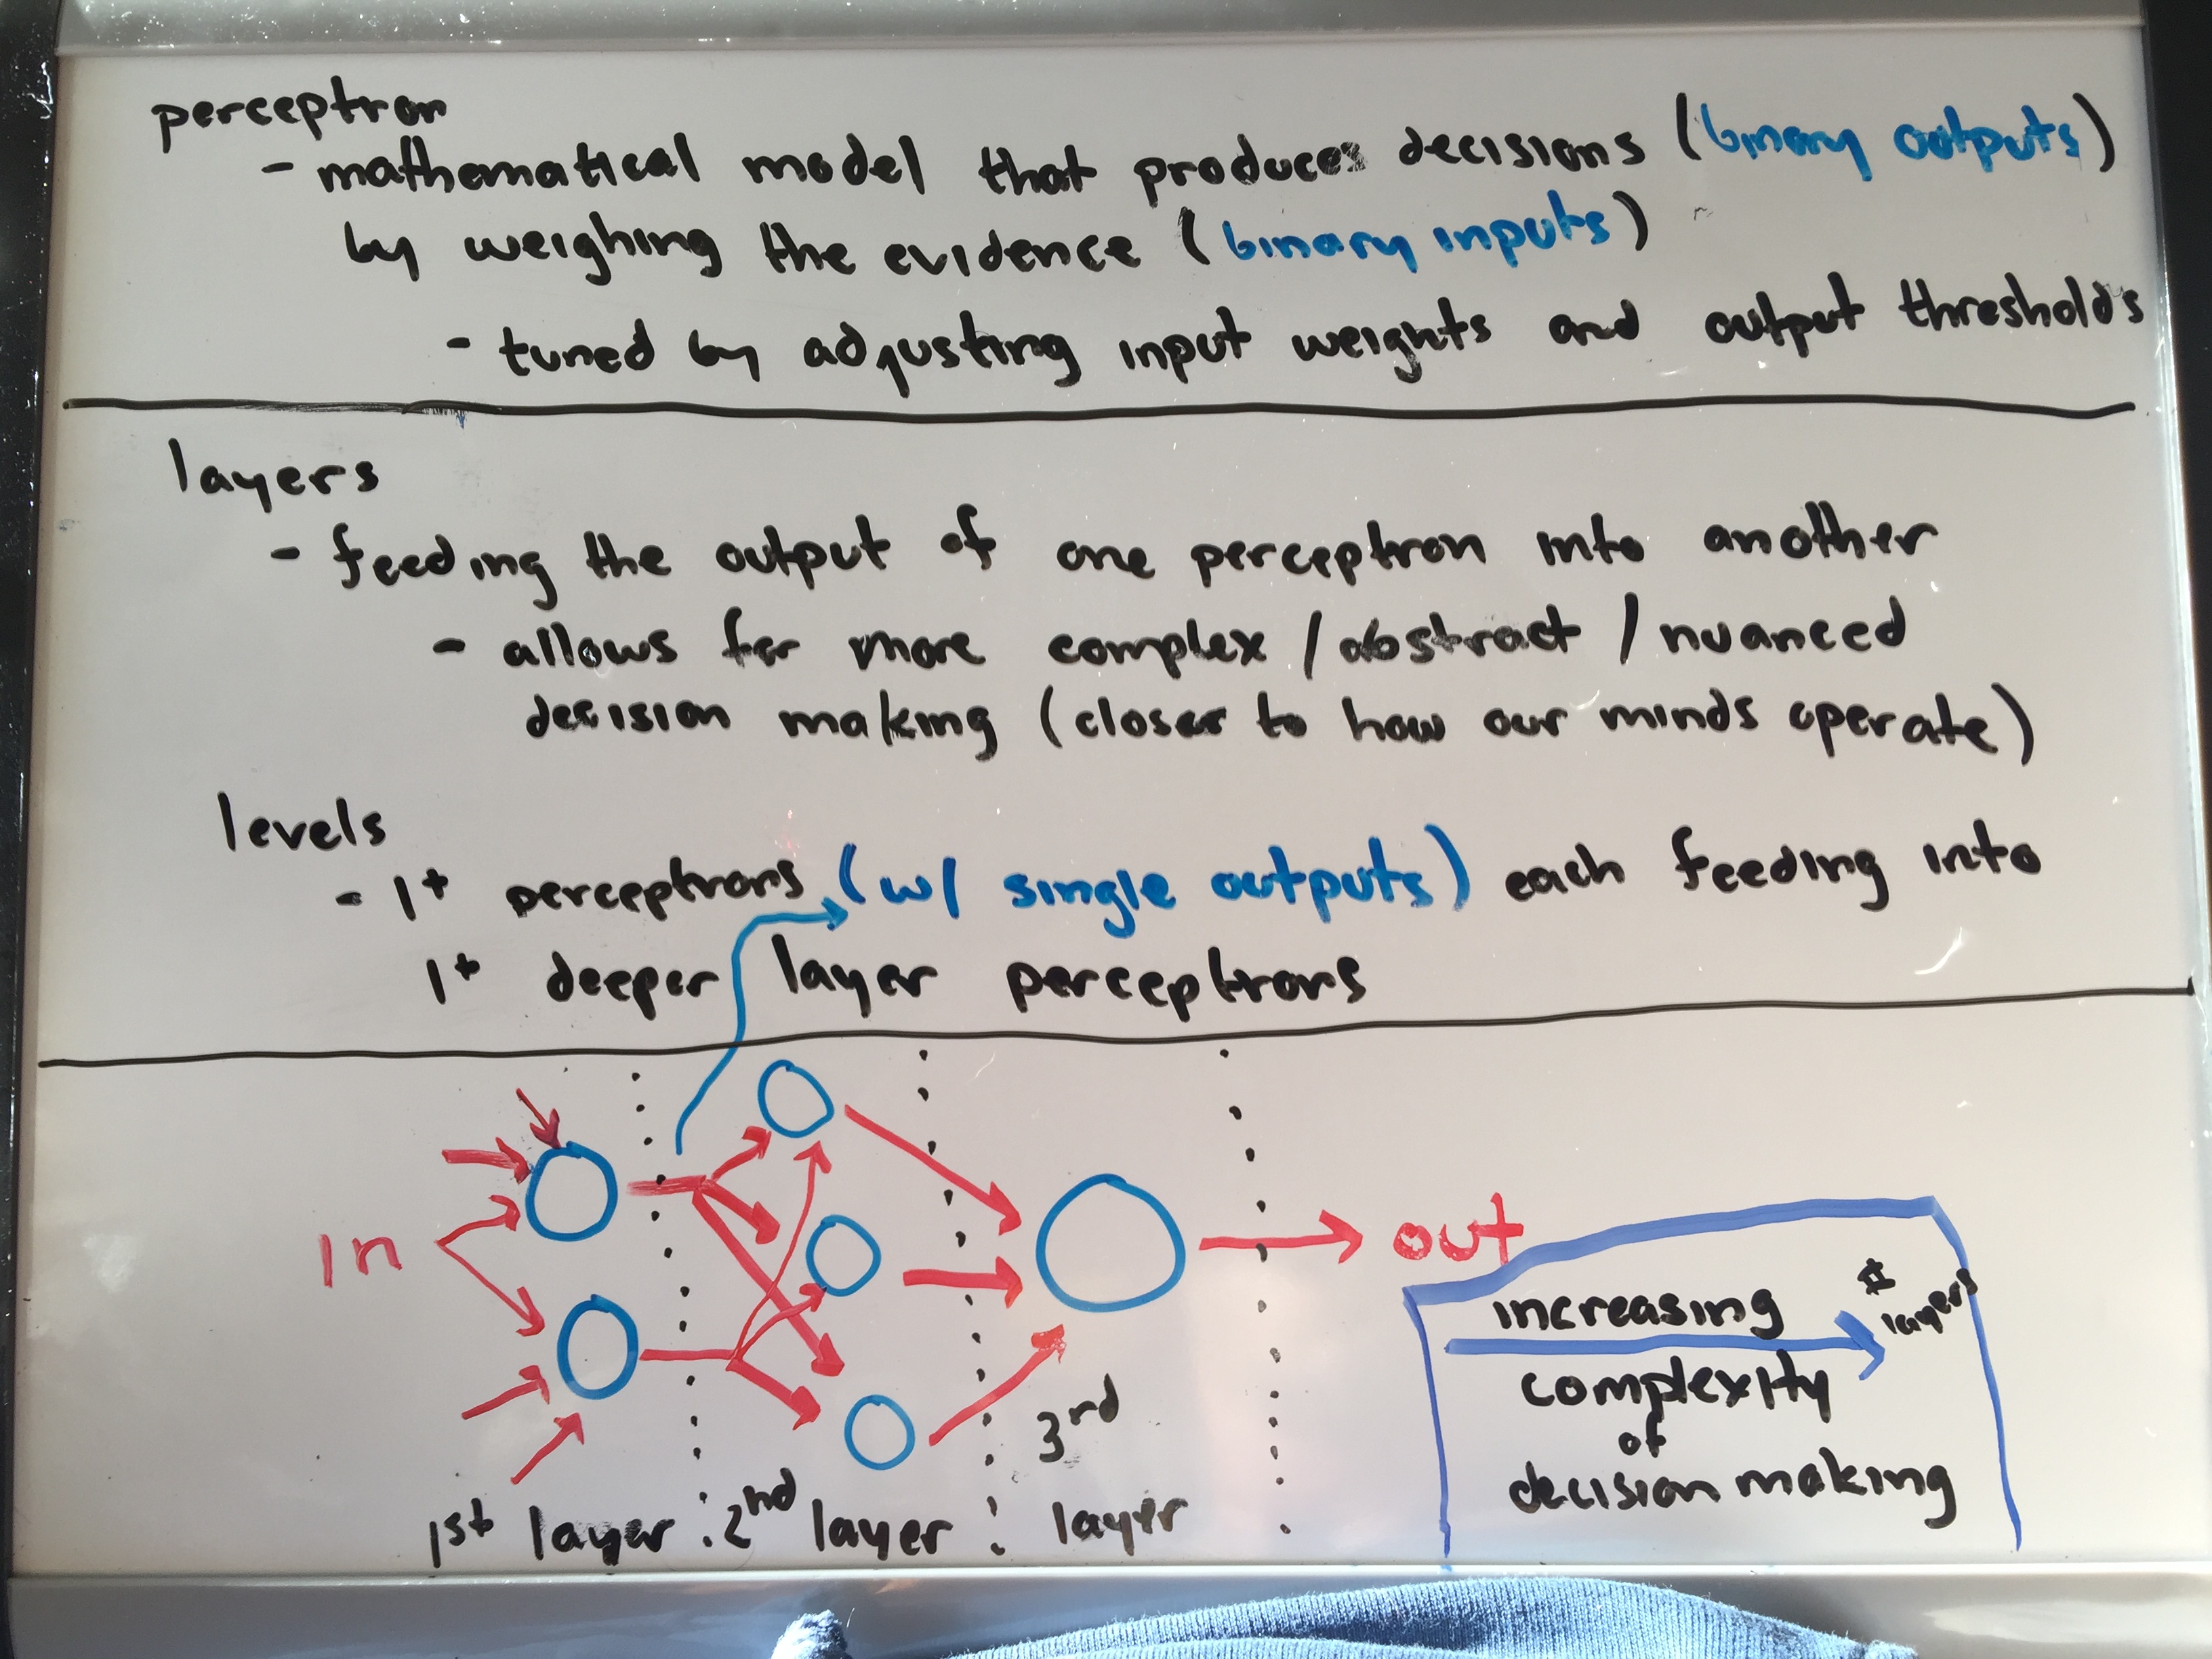 perceptron
- mathematical model that produces decisions (binary outputs)
by weighing the evidence (binary inputs)
- tuned by adjusting input weights and output thresholds
layers
- feeding the output of one perceptron into another
- allows for more complex / abstract / nuanced
decision making (closer to how our minds operate)
levels
- 1+ perceptrons (w/ single outputs) each feeding into
1+ deeper layer perceptrons
In
out
increasing
# layers
complexity
of
decision making
1st layer
2nd layer
3rd
layer